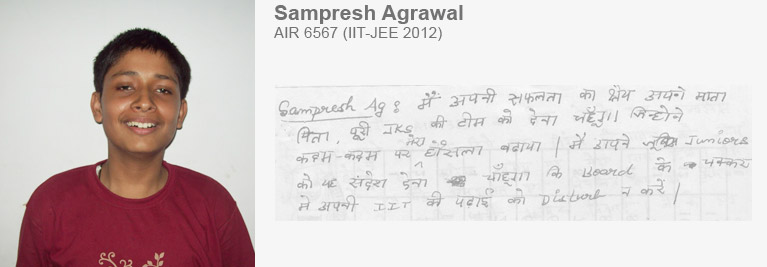 Sampresh Agrawal
AIR 6567 (IIT-JEE 2012)
Sampresh Ag : मैं अपनी सफलता का श्रेय अपने माता
पिता, पूरी IKS की टीम को देना चाहूँगा। जिन्होंने
कदम-कदम पर मेरा हौसला बढाया | मैं अपने Juniors
को यह संदेश देना चाँहूगा कि Board के चक्कर
मे अपनी IIT की पढाई को Disturb न करें |